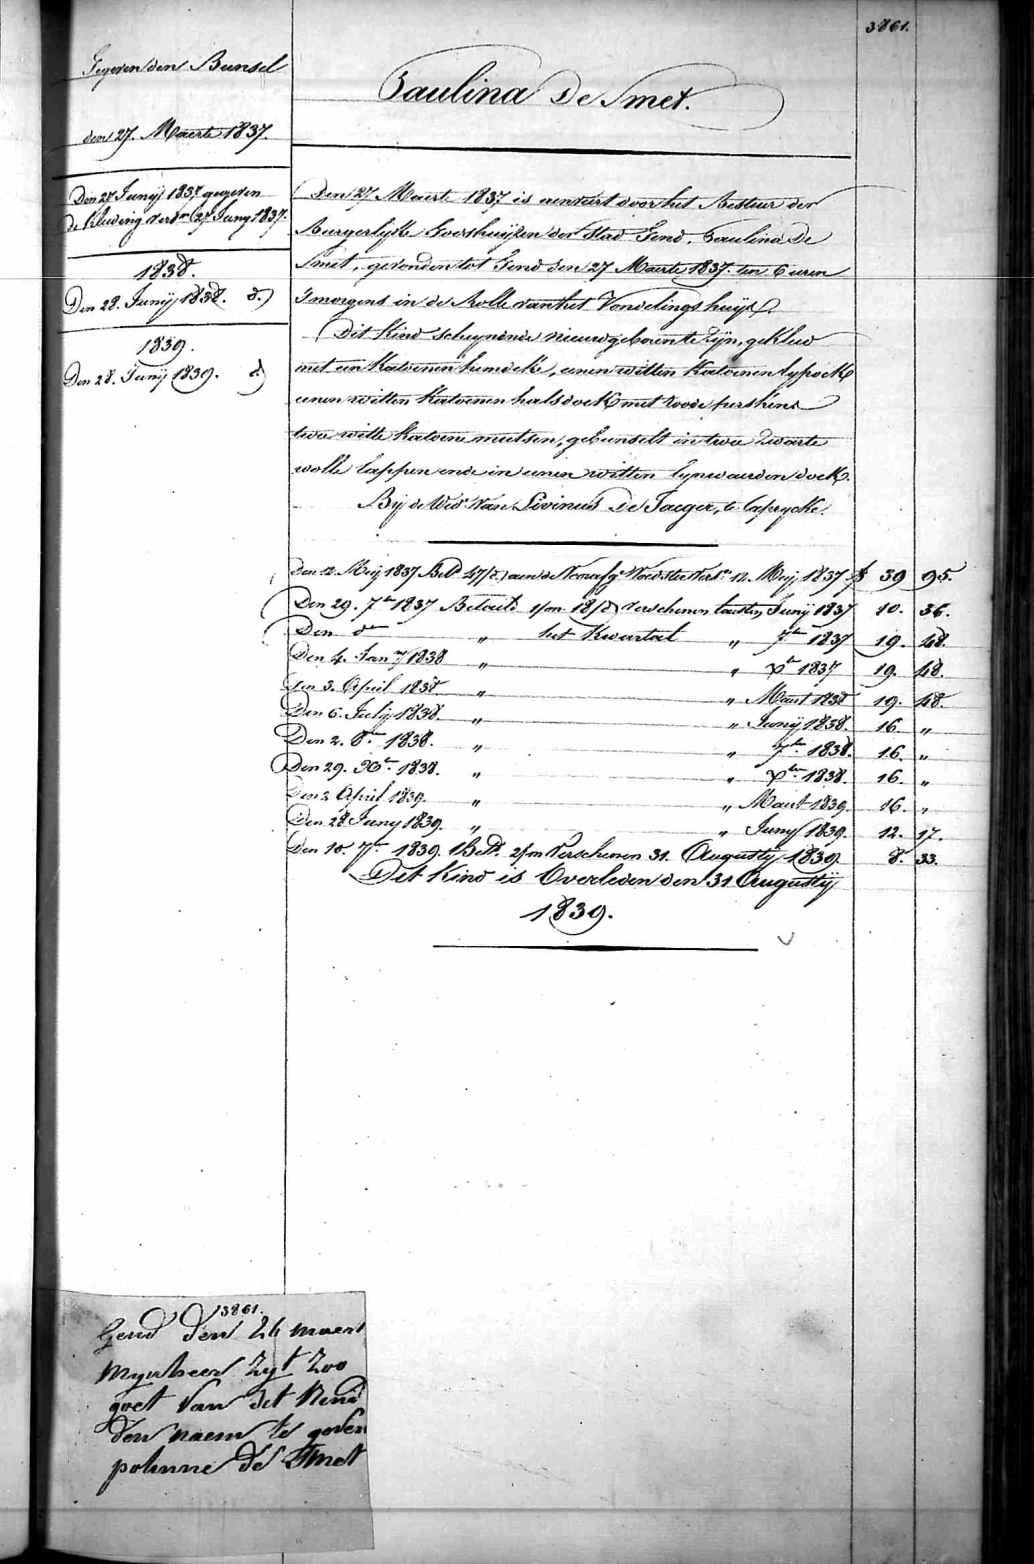 3861.
Gegeven den Bunsel
den 27. Maerte 1837.
Den 27 Junij 1837 gegeven
de kleeding vers.en 27 Juny 1837.
1838.
Den 28. Junij 1838. d.)
1839.
Den 28. Junij 1839. d)
Paulina De Smet.
Den 27 Maerte 1837 is aenveirt door het Bestuer der
Burgerlijke Godshuijzen der Stad Gend, Paulina De
Smet, gevonden tot Gend den 27 Maerte 1837. ten 6 uren
Smorgens in de Rolle van het Vondelingshuijs.
Dit Kind scheynende nieuwgeboren te zijn, gekleed
met een Katoenen hemdeke, eenen witten Katoenen
eenen witten Katoenen halsdoek met roode perskens
twee witte Katoene mutsen, gebunselt in twee zwarte
wolle lappen ende in eenen witten lynwaerden doek.
Bij de Wed. Van Livinus De Jaeger, te Caprycke.
Den 12. Meij 1837 Bet. 47/d) aen de Voorsz. Voedster Vers.en 12. Meij 1837 f 39 95.
Den 29. 7br 1837 Betaelt 1/m 18/d) verschenen lasten Junij 1837 10. 36.
Den do " het Kwartael " 7br 1837 19. 48.
Den 4. Jan.ry 1838 " " Xbr 1837 19. 48.
Den 3. April 1838 " " Maert 1838 19. 48.
Den 6. Julij 1838. " " Junij 1838. 16. "
Den 2. 8br 1838. " " 7br 1838. 16. "
Den 29. Xbr 1838. " " Xbr 1838. 16. "
Den 2 April 1839. " " Maert 1839. 16. "
Den 28 Juny 1839. " " Juny 1839. 12. 17.
Den 10. 7br 1839. Bet. 2/m Verschenen 31. Augusty 1839 8. 33.
Dit Kind is Overleden den 31 Augustij
1839.
3861.
Gend den 26 maert
Mynheer Zyt Zoo
goet Van det Kend
den naem te geven
polinne de Smet